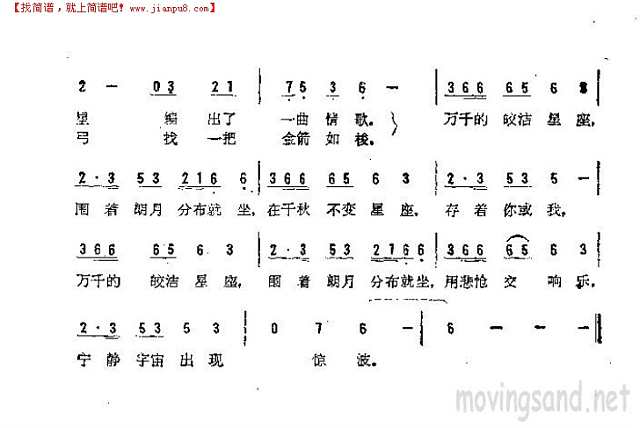 【找简谱，就上简谱吧! www.jianpu8.com】
2 — 03 21 | 75 3 6 — | 366 65 6 3 |
星 编 出了 一曲 情 歌。 万千的 皎洁 星 座，
弓 找 一把 金箭 如 梭。
2·3 53 216 6 | 366 65 6 3 | 2·3 53 5 — |
围 着 朗月 分布就 坐，在千秋 不变 星 座。 存着 你或 我，
366 65 6 3 | 2·3 53 2766 6 | 366 65 6 3 |
万千的 皎洁 星 座， 围 着 朗月 分布就坐，用悲怆 交 响 乐，
2·3 53 5 3 | 0 7 6 — | 6 — — ‖
宁 静 宇宙 出 现 惊 波。
movingsand.net